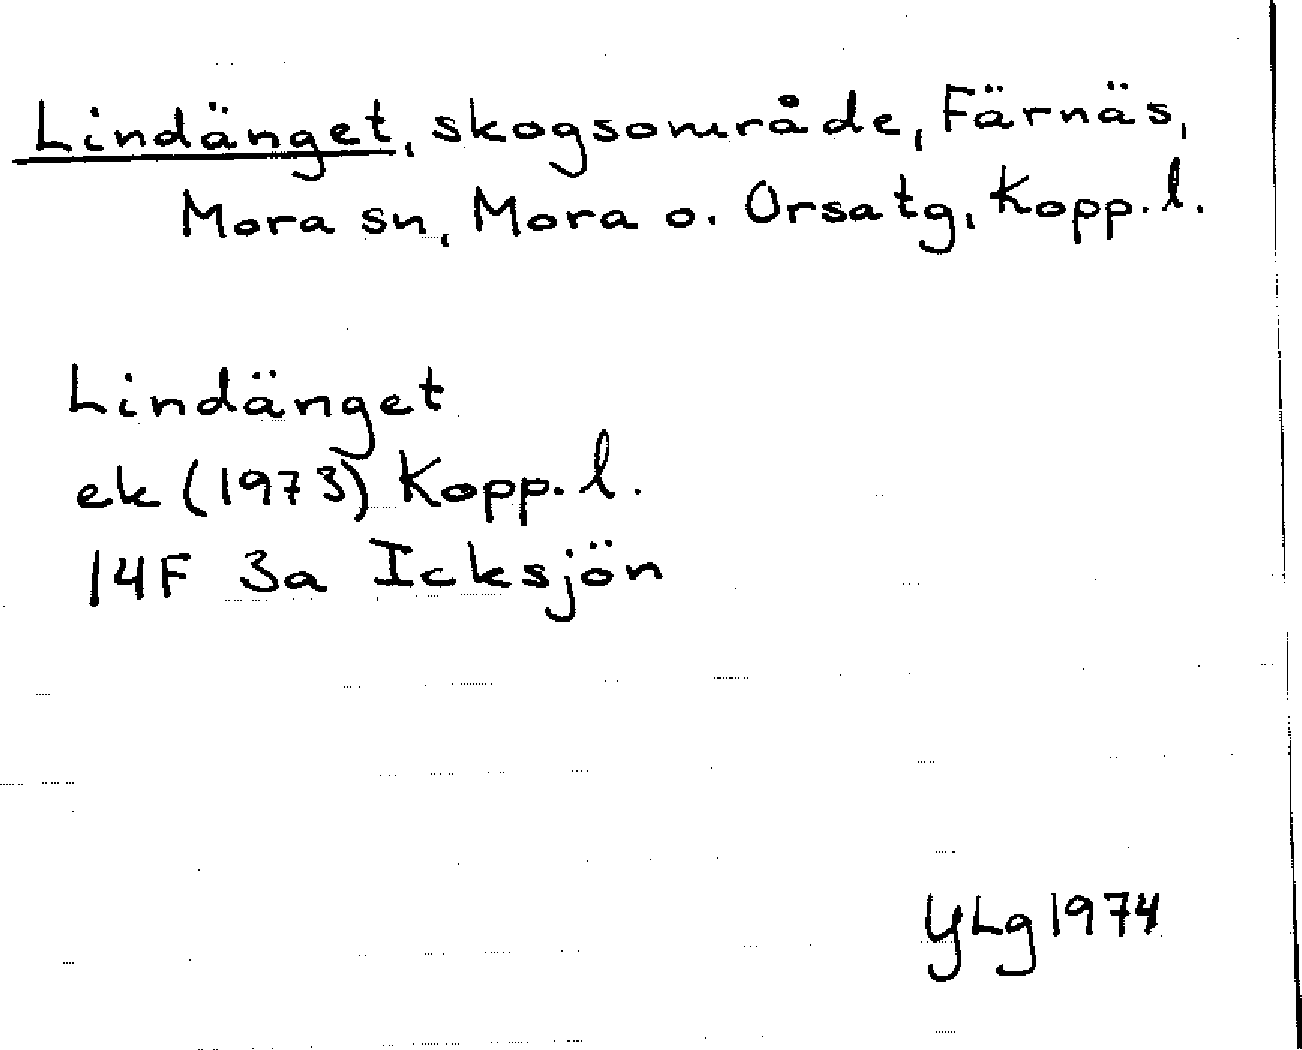 Lindänget, skogsområde, Färnäs,
Mora sn, Mora o. Orsa tg, Kopp. l.
Lindänget
ek (1973) Kopp. l.
14F 3a Icksjön
YLg 1974